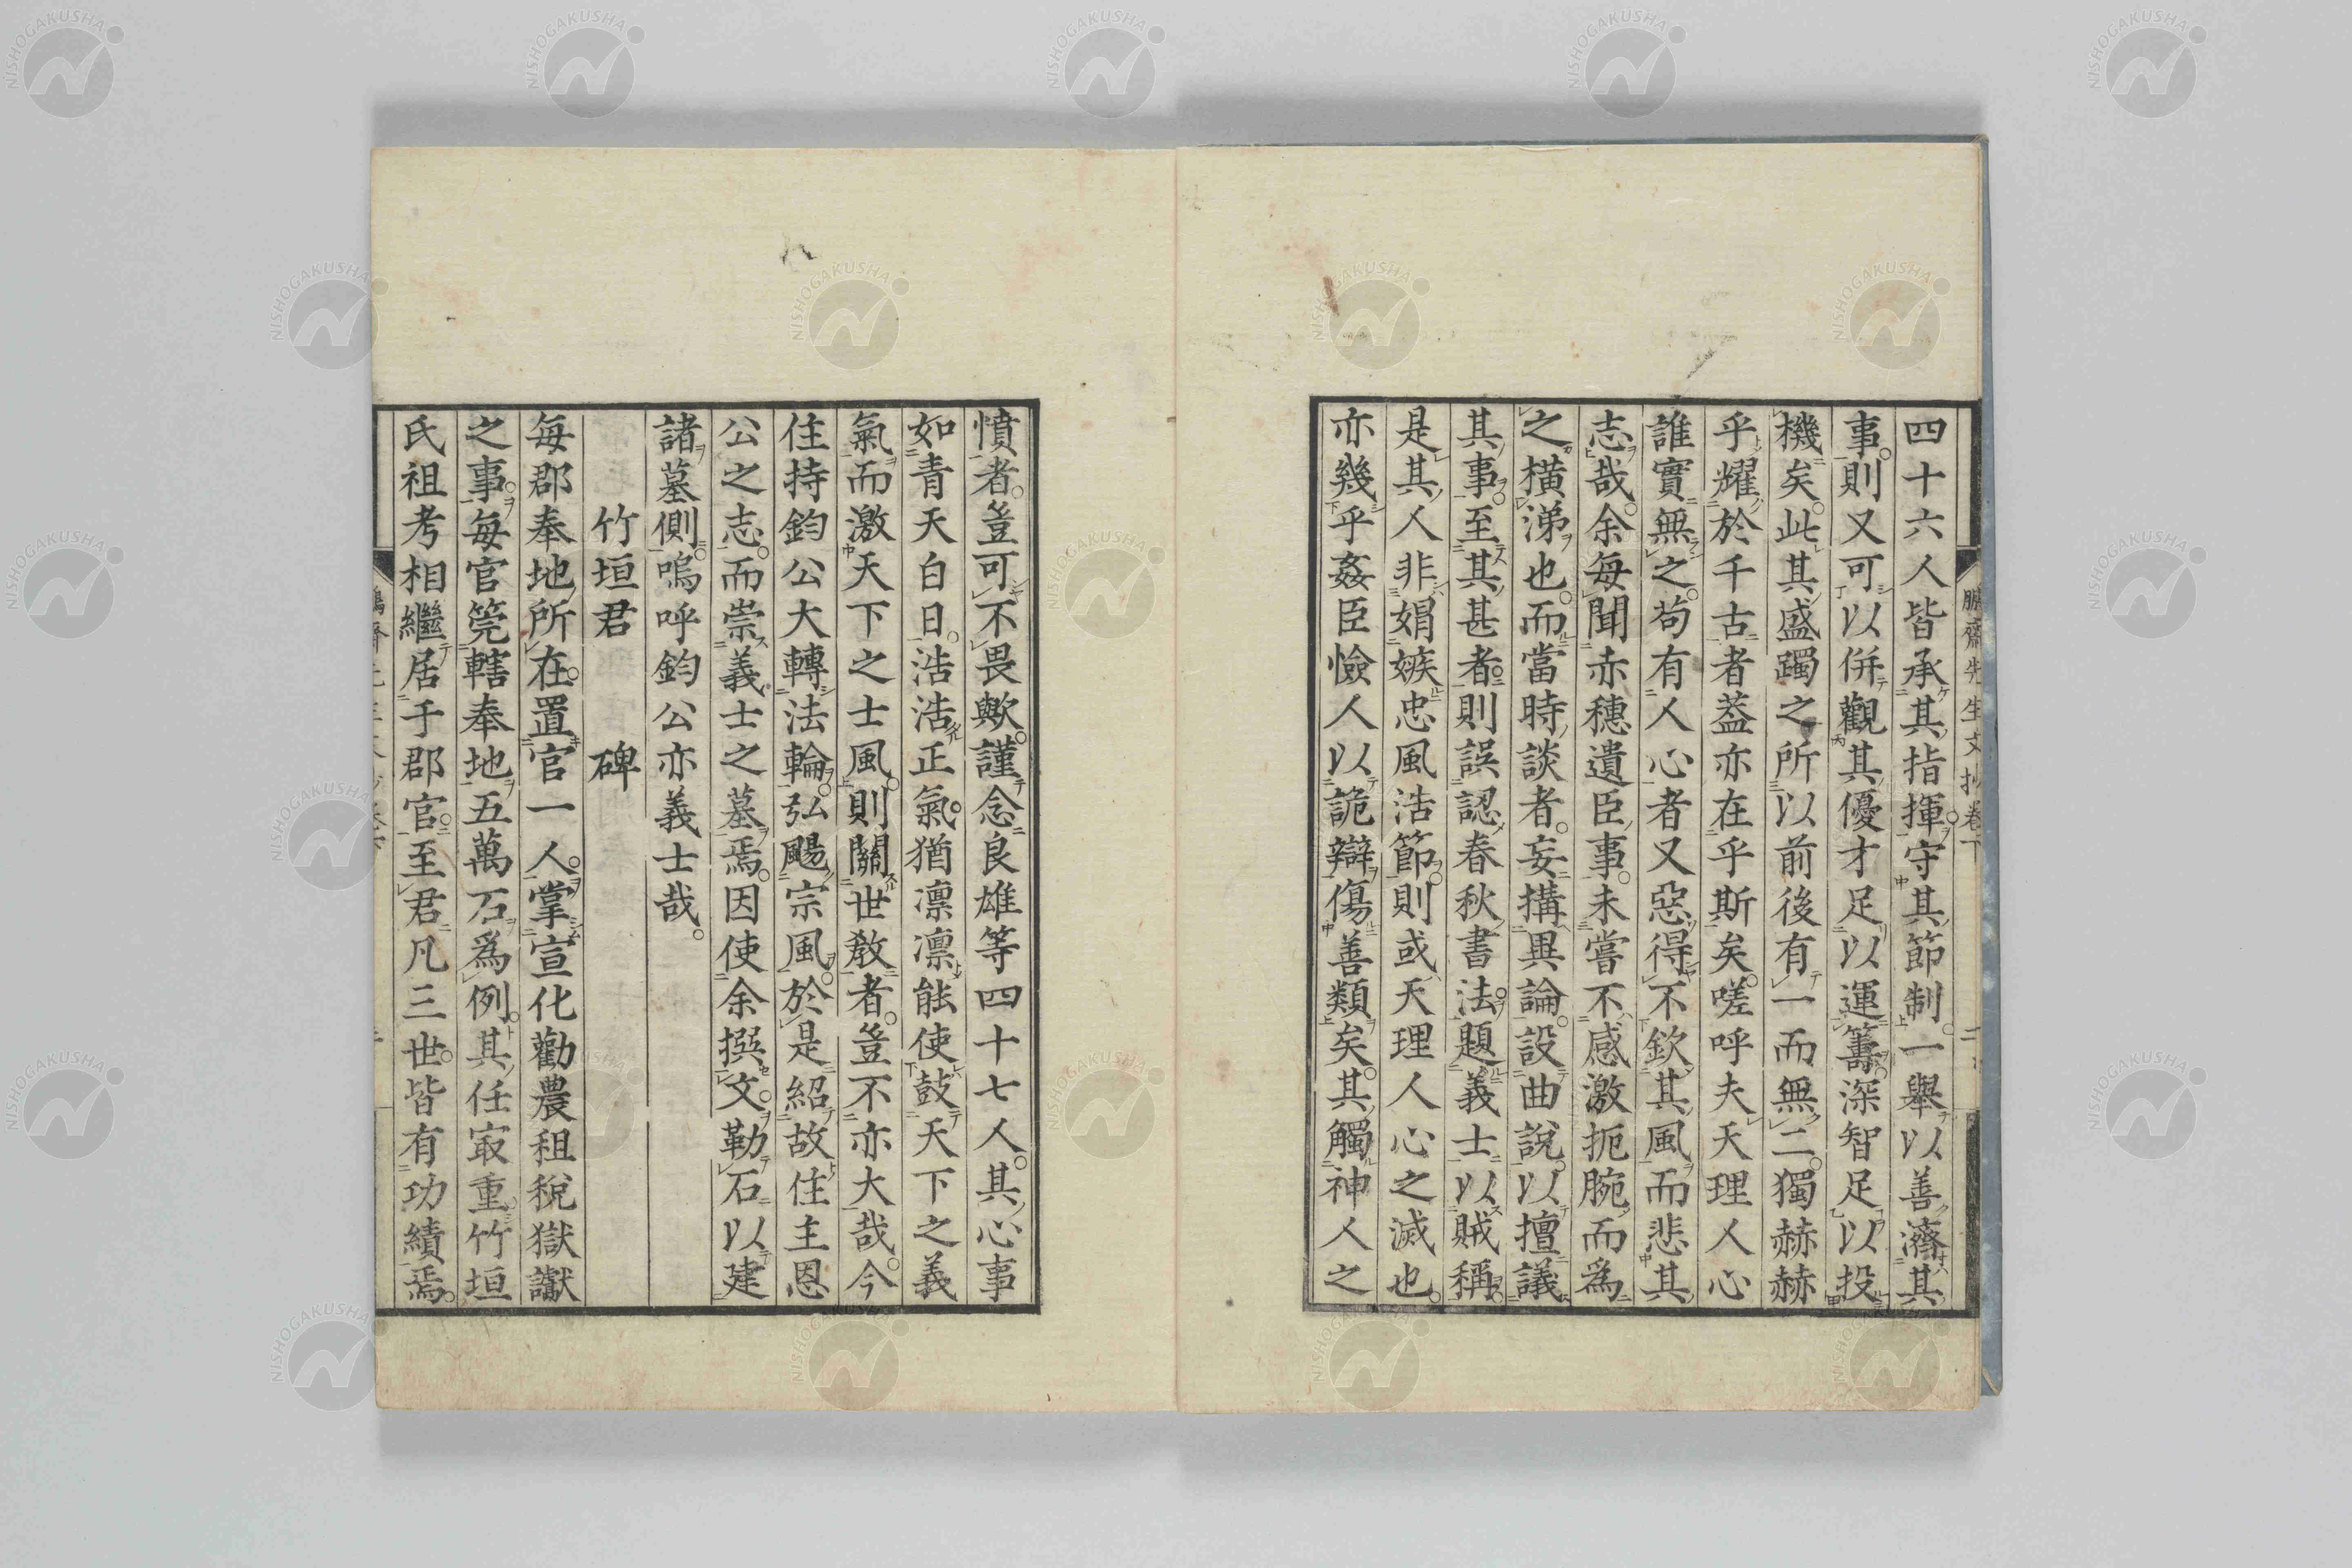 四十六人皆承其指揮。守其節制。一擧以善濟其
事。則又可以併觀其優才足以運籌。深智足以投
機矣。此其盛躅之所以前後有一而無二。獨赫赫
乎耀於千古者蓋亦在乎斯矣。嗟呼夫天理人心
誰實無之。苟有人心者又惡得不欽其風而悲其
志哉。余每聞赤穗遺臣事。未嘗不感激扼腕而爲
之橫涕也。而當時談者。妄搆異論。設曲說。以擅議
其事。至其甚者。則誤認春秋書法。題義士以賊稱。
是其人非娟嫉忠風浩節。則或天理人心之滅也。
亦幾乎姦臣憸人以詭辯傷善類矣。其觸神人之
憤者。豈可不畏歟。謹念良雄等四十七人。其心事
如青天白日。浩浩正氣。猶凛凛能使鼓天下之義
氣而激天下之士風。則關世敎者。豈不亦大哉。今
住持鈞公大轉法輪。弘颺宗風。於是紹故住主恩
公之志。而崇義士之墓焉。因使余撰文。勒石以建
諸墓側。嗚呼鈞公亦義士哉。
竹垣君碑
每郡奉地所在。置官一人。掌宣化勸農租稅獄讞
之事。每官筦轄奉地五萬石爲例。其任㝡重。竹垣
氏祖考相繼居于郡官。至君凡三世。皆有功績焉。
NISHOGAKUSHA